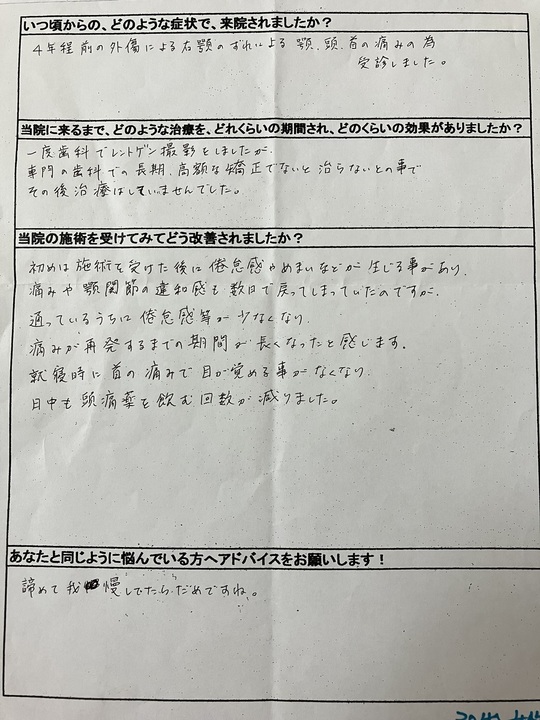 いつ頃からの、どのような症状で、来院されましたか？
4年程前の外傷による右顎のずれによる 顎、頭、首の痛みの為
受診しました。
当院に来るまで、どのような治療を、どれくらいの期間され、どのくらいの効果がありましたか？
一度歯科でレントゲン撮影をしましたが、
専門の歯科での長期、高額な矯正でないと治らないとの事で
その後治療はしていませんでした。
当院の施術を受けてみてどう改善されましたか？
初めは施術を受けた後に倦怠感やめまいなどが生じる事があり、
痛みや顎関節の違和感も数日で戻ってしまっていたのですが、
通っているうちに倦怠感等が少なくなり、
痛みが再発するまでの期間が長くなったと感じます。
就寝時に首の痛みで目が覚める事がなくなり、
日中も頭痛薬を飲む回数が減りました。
あなたと同じように悩んでいる方へアドバイスをお願いします！
諦めて我慢してたらだめですね。